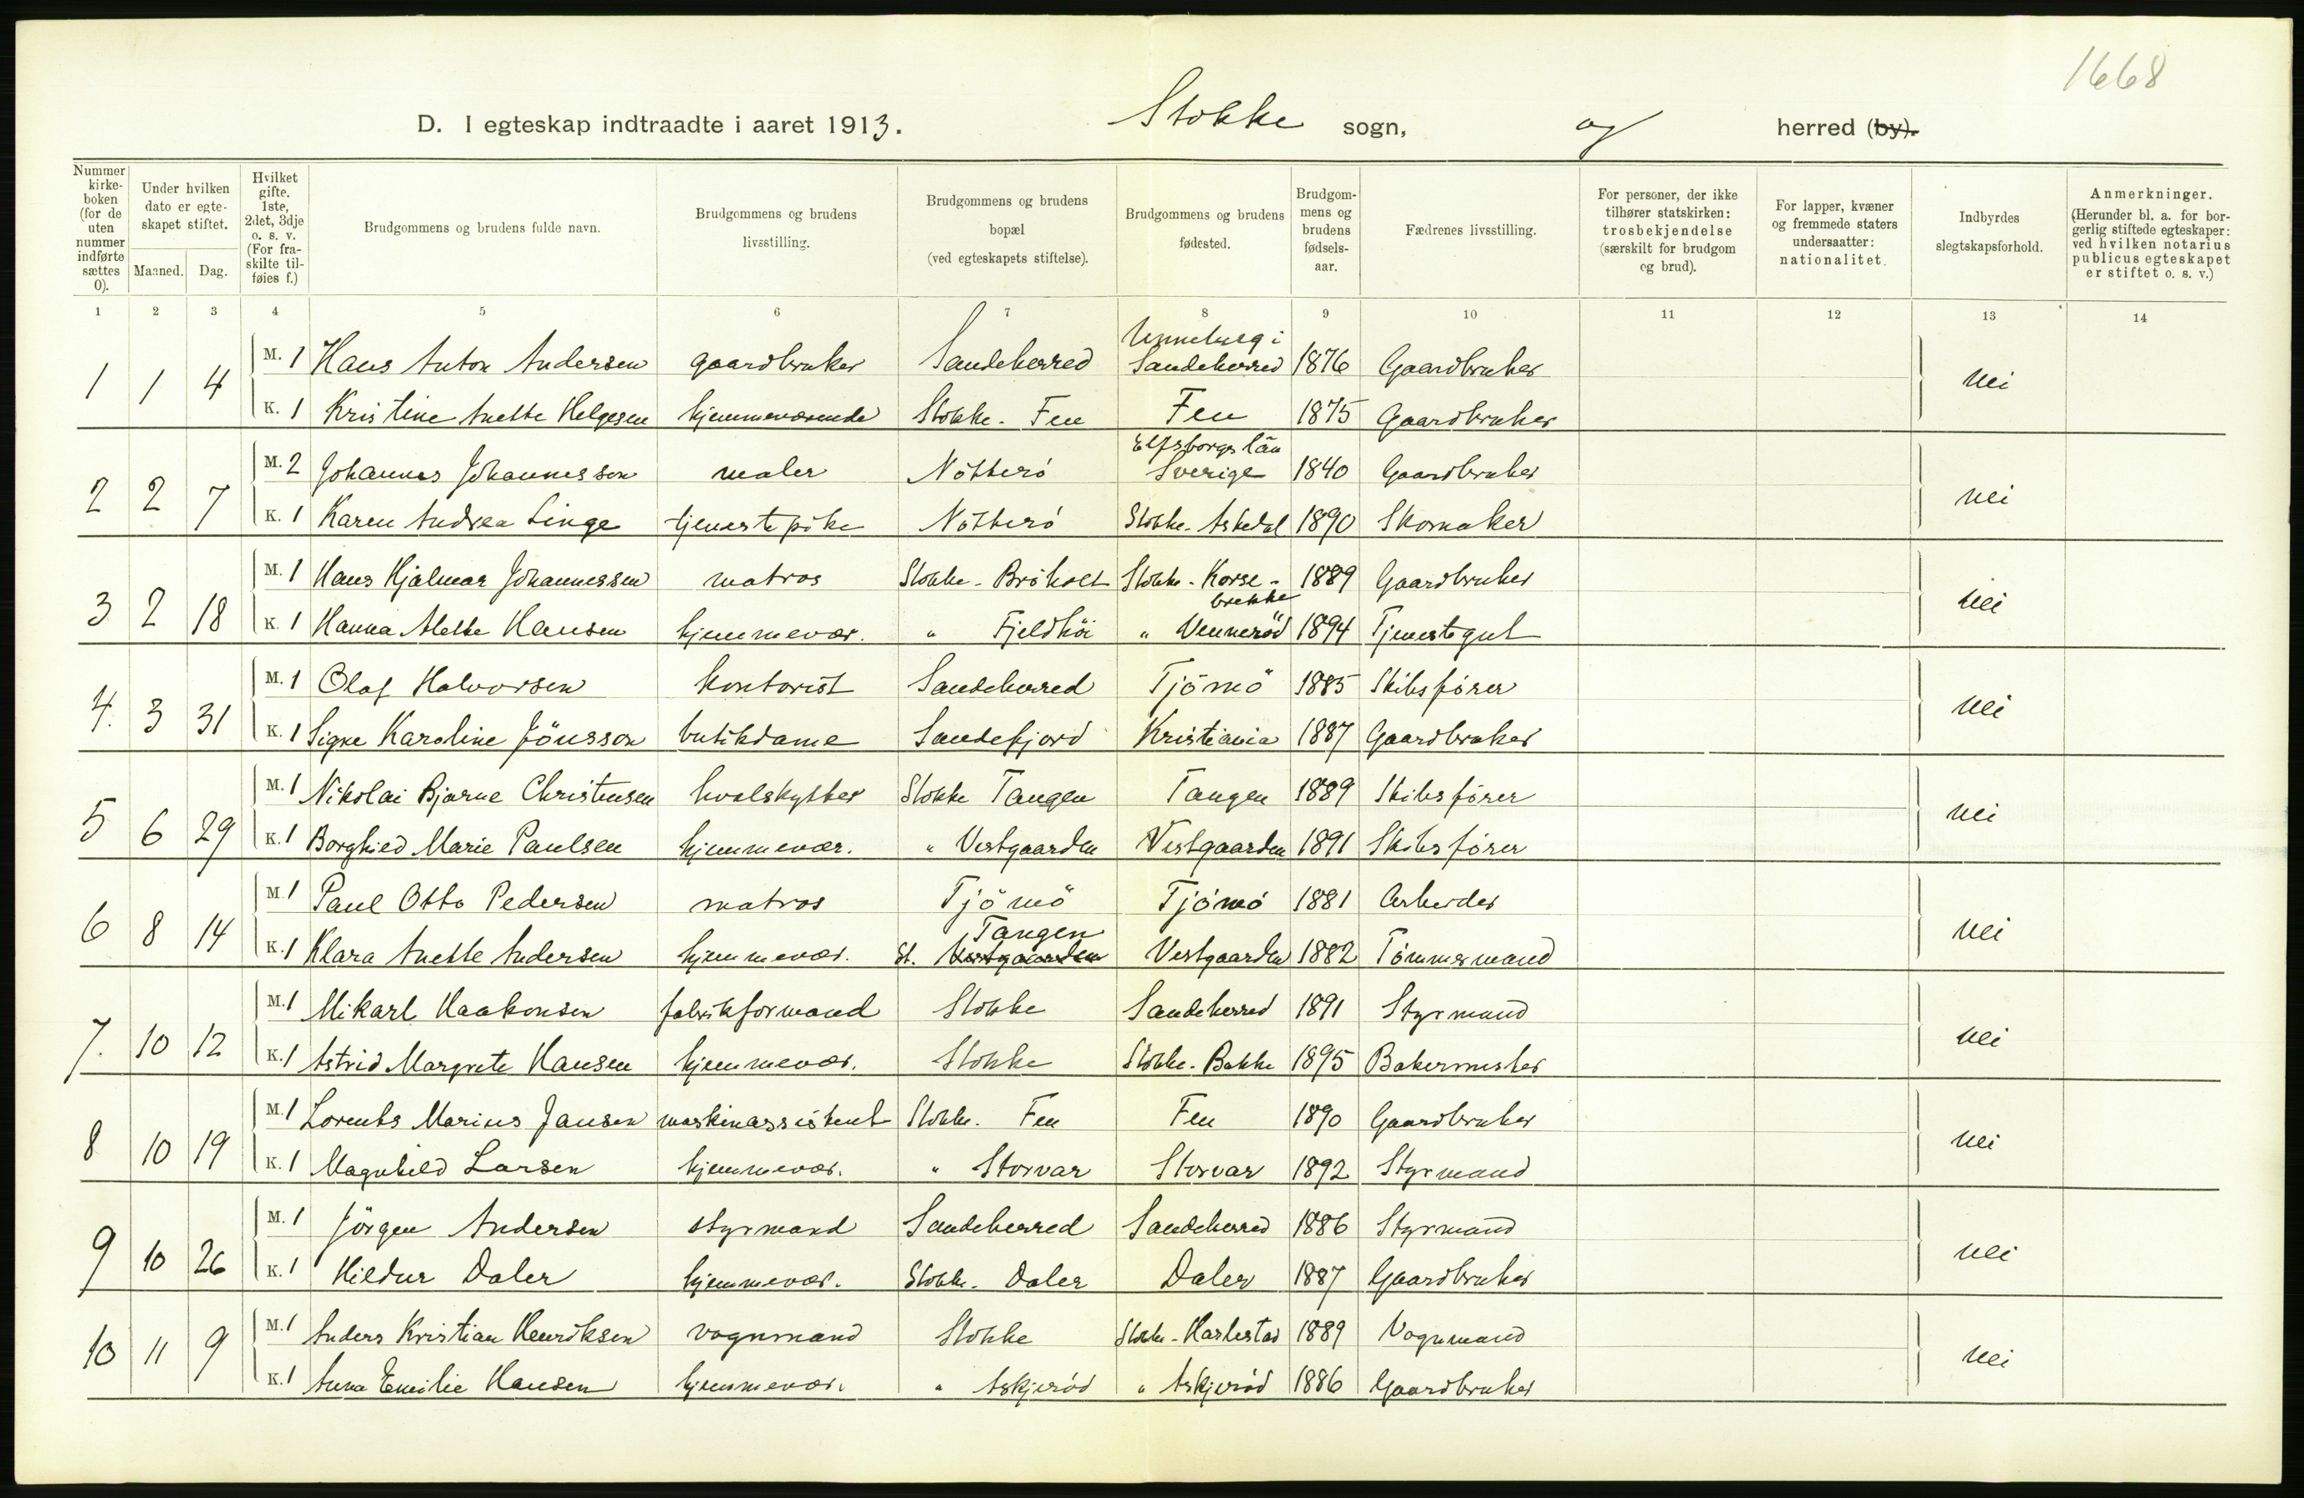 1668
D. I egteskap indtraadte i aaret 1913. Stokke sogn, og herred (by).
Nummer kirke-boken (for de uten nummer indførte sættes 0).
Under hvilken dato er egte-skapet stiftet.
Maaned. Dag.
Hvilket gifte. 1ste, 2det, 3dje o. s. v. (For fra-skilte til-føies f.)
Brudgommens og brudens fulde navn.
Brudgommens og brudens livsstilling.
Brudgommens og brudens bopæl (ved egteskapets stiftelse).
Brudgommens og brudens fødested.
Brudgom-mens og brudens fødsels-aar.
Fædrenes livsstilling.
For personer, der ikke tilhører statskirken: trosbekjendelse (særskilt for brudgom og brud).
For lapper, kvæner og fremmede staters undersaatter: nationalitet.
Indbyrdes slegtskapsforhold.
Anmerkninger. (Herunder bl. a. for bor-gerlig stiftede egteskaper: ved hvilken notarius publicus egteskapet er stiftet o. s. v.)
1 2 3 4 5 6 7 8 9 10 11 12 13 14
1 1 4 M. 1 Hans Anton Andersen gaardbruker Sandeherred Unneberg i Sandeherred 1876 Gaardbruker nei
K. 1 Kristine Anette Helgesen hjemmeværende Stokke - Fen Fen 1875 Gaardbruker
2 2 7 M. 2 Johannes Johannesson maler Nötterö Elfsborgs län Sverige 1840 Gaardbruker nei
K. 1 Karen Andrea Linge tjenestepike Nötterö Stokke - Askedal 1890 Skomaker
3 2 18 M. 1 Hans Hjalmar Johannessen matros Stokke - Bröholt Stokke - Korsebrekke 1889 Gaardbruker nei
K. 1 Hanna Alette Hansen hjemmevær. " Fjeldhöi " Venneröd 1894 Tjenestegut
4. 3 31 M. 1 Olaf Halvorsen kontorist Sandeherred Tjömö 1885 Skibsfører nei
K. 1 Signe Karoline Jönsson butikdame Sandefjord Kristiania 1887 Gaardbruker
5 6 29 M. 1 Nikolai Bjarne Christensen hvalskytter Stokke Tangen Tangen 1889 Skibsfører nei
K. 1 Borghild Marie Paulsen hjemmevær. " Vestgaarden Vestgaarden 1891 Skibsfører
6 8 14 M. 1 Paul Otto Pedersen matros Tjömö Tjömö 1881 Arbeider nei
K. 1 Klara Anette Andersen hjemmevær. St. Vestgaarden Tangen Vestgaarden 1882 Tömmermand
7. 10 12 M. 1 Mikarl Haakonsen fabrikformand Stokke Sandeherred 1891 Styrmand nei
K. 1 Astrid Margrete Hansen hjemmevær. Stokke Stokke - Bakke 1895 Bakermester
8 10 19 M. 1 Lorents Marius Jansen maskinassistent Stokke. Fen Fen 1890 Gaardbruker nei
K. 1 Magnhild Larsen hjemmevær. " Storvar Storvar 1892 Styrmand
9 10 26 M. 1 Jörgen Andersen styrmand Sandeherred Sandeherred 1886 Styrmand nei
K. 1 Hildur Daler hjemmevær. Stokke - Daler Daler 1887 Gaardbruker
10 11 9 M. 1 Anders Kristian Henriksen vognmand Stokke Stokke - Haslestad 1889 Vognmand nei
K. 1 Anna Emilie Hansen hjemmevær. " Askjeröd " Askjeröd 1886 Gaardbruker